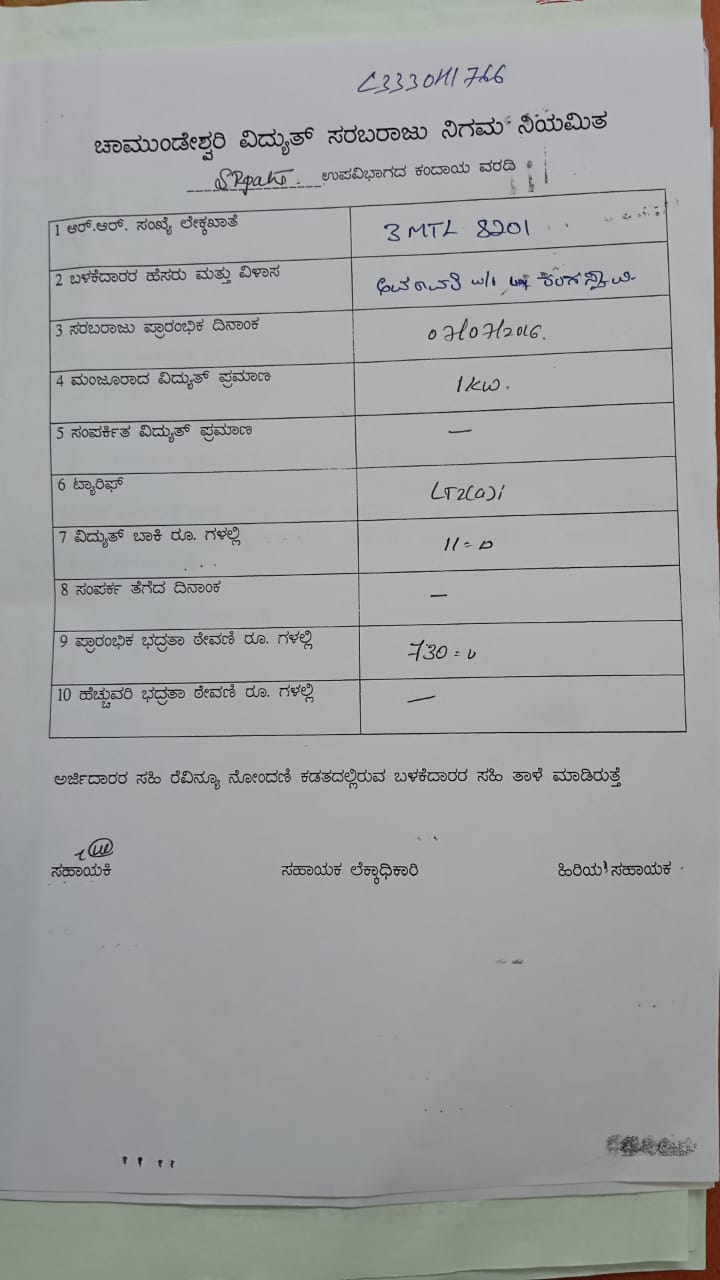 C333041766
ಚಾಮುಂಡೇಶ್ವರಿ ವಿದ್ಯುತ್ ಸರಬರಾಜು ನಿಗಮ ನಿಯಮಿತ
ಉಪವಿಭಾಗದ ಕಂದಾಯ ವರದಿ
1 ಆರ್.ಆರ್. ಸಂಖ್ಯೆ ಲೇಕ್ಕಖಾತೆ 3 MTL 8201
2 ಬಳಕೆದಾರರ ಹೆಸರು ಮತ್ತು ವಿಳಾಸ w/o
3 ಸರಬರಾಜು ಪ್ರಾರಂಭಿಕ ದಿನಾಂಕ 07/07/2016.
4 ಮಂಜೂರಾದ ವಿದ್ಯುತ್ ಪ್ರಮಾಣ 1 kw.
5 ಸಂಪರ್ಕಿತ ವಿದ್ಯುತ್ ಪ್ರಮಾಣ —
6 ಟ್ಯಾರಿಫ್ LT2(a)i
7 ವಿದ್ಯುತ್ ಬಾಕಿ ರೂ. ಗಳಲ್ಲಿ 11=0
8 ಸಂಪರ್ಕ ತೆಗೆದ ದಿನಾಂಕ —
9 ಪ್ರಾರಂಭಿಕ ಭದ್ರತಾ ಠೇವಣಿ ರೂ. ಗಳಲ್ಲಿ 730=0
10 ಹೆಚ್ಚುವರಿ ಭದ್ರತಾ ಠೇವಣಿ ರೂ. ಗಳಲ್ಲಿ —
ಅರ್ಜಿದಾರರ ಸಹಿ ರೆವಿನ್ಯೂ ನೋಂದಣಿ ಕಡತದಲ್ಲಿರುವ ಬಳಕೆದಾರರ ಸಹಿ ತಾಳೆ ಮಾಡಿರುತ್ತೆ
ಸಹಾಯಕಿ ಸಹಾಯಕ ಲೆಕ್ಕಾಧಿಕಾರಿ ಹಿರಿಯ ಸಹಾಯಕ